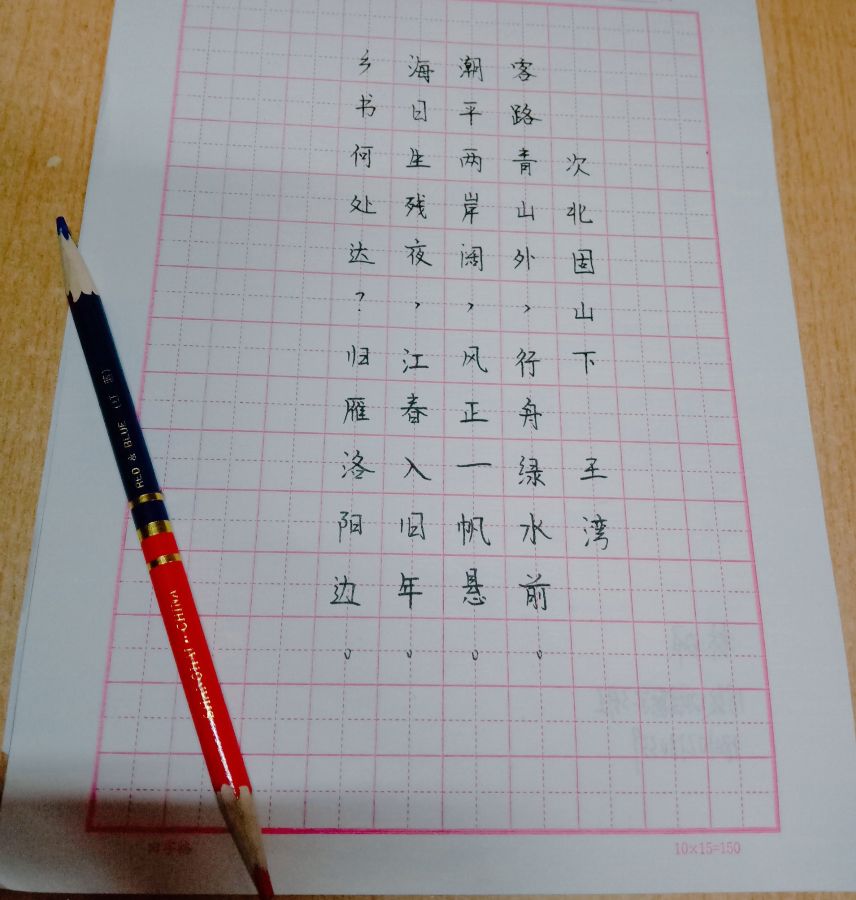 次北固山下 王湾
客路青山外,行舟绿水前。
潮平两岸阔,风正一帆悬。
海日生残夜,江春入旧年。
乡书何处达?归雁洛阳边。
RED & BLUE (红 蓝)
SHANGHAI··CHINA
10×15=150